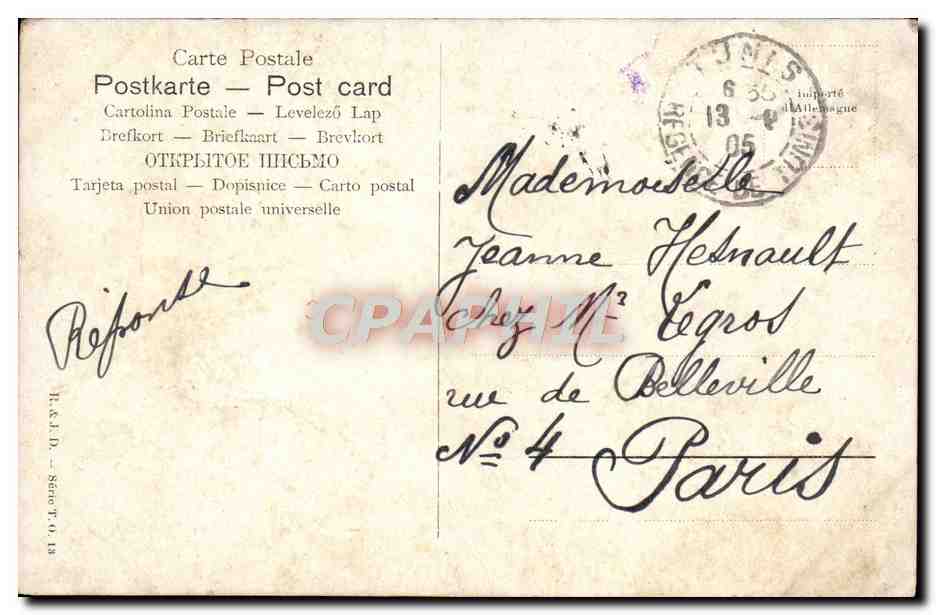 Carte Postale
Postkarte — Post card
Cartolina Postale — Levelező Lap
Brefkort — Briefkaart — Brevkort
ОТКРЫТОЕ ПИСЬМО
Tarjeta postal — Dopisnice — Carto postal
Union postale universelle
Réponse
R. & J. D. — Série T. O. 13
TUNIS
6 35
13
05
REGENCE DE TUNIS
Importé
d'Allemagne
Mademoiselle
Jeanne Hesnault
chez Mr Tegros
rue de Belleville
No 4 Paris
CPAPHIL